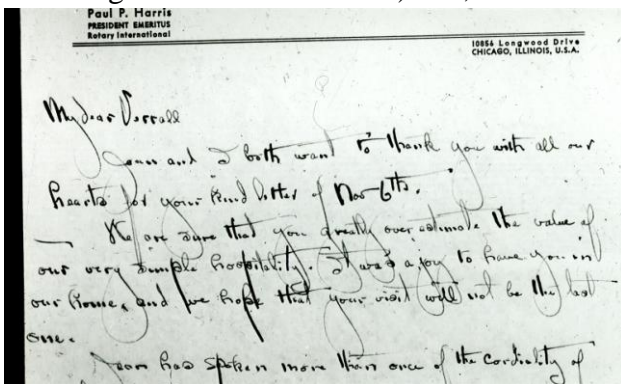 Paul P. Harris
PRESIDENT EMERITUS
Rotary International
10856 Longwood Drive
CHICAGO, ILLINOIS, U.S.A.
My dear Verrall
Jean and I both want to thank you with all our
hearts for your kind letter of Nov 6th.
We are sure that you greatly over estimate the value of
our very simple hospitality. It was a joy to have you in
our home, and we hope that your visit will not be the last
one.
Jean has spoken more than once of the cordiality of